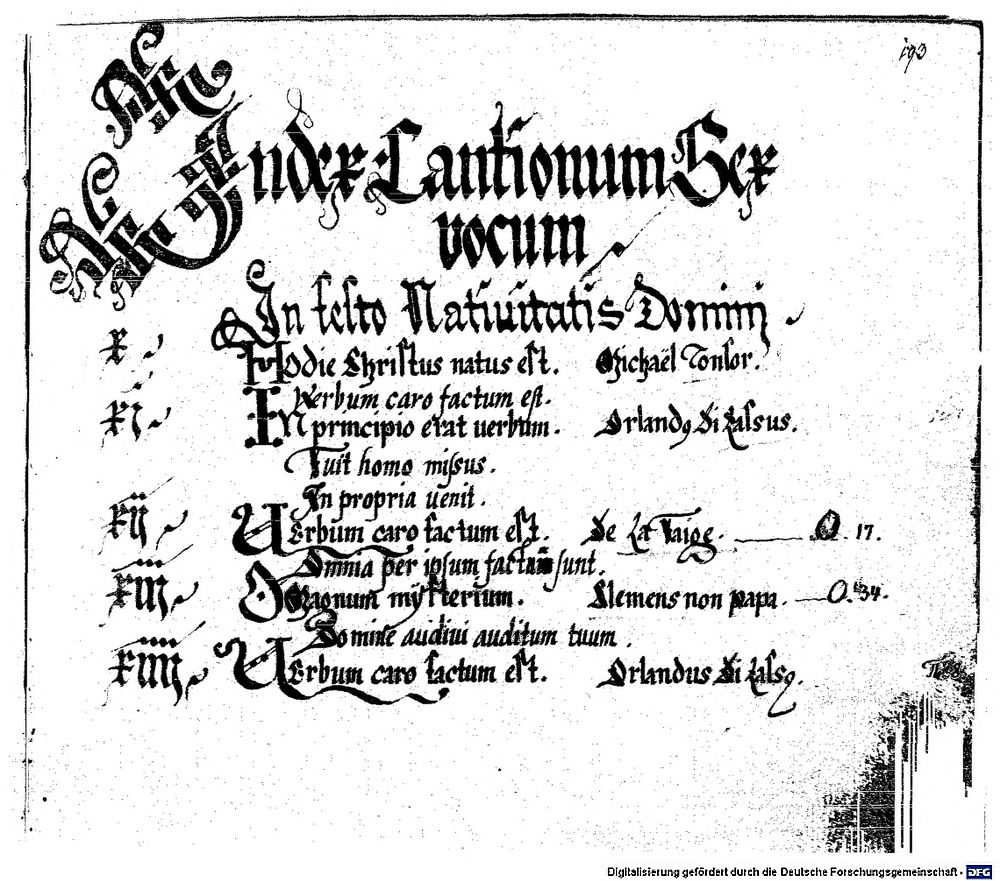 193
Index Cantionum Sex
vocum
In festo Natiuitatis Domini
x. Hodie Christus natus est. Michaël Tonsor.
Verbum caro factum est.
xi. IN principio erat uerbum. Orlandꝰ di Lassus.
Fuit homo missus.
In propria uenit.
xii VErbum caro factum est. De La Faige. O. 17.
Omnia per ipsum factum sunt.
xiii O Magnum mysterium. Clemens non papa. O. 34.
Domine audiui auditum tuum.
xiiii VErbum caro factum est. Orlandus di Lassꝰ.
Digitalisierung gefördert durch die Deutsche Forschungsgemeinschaft - DFG